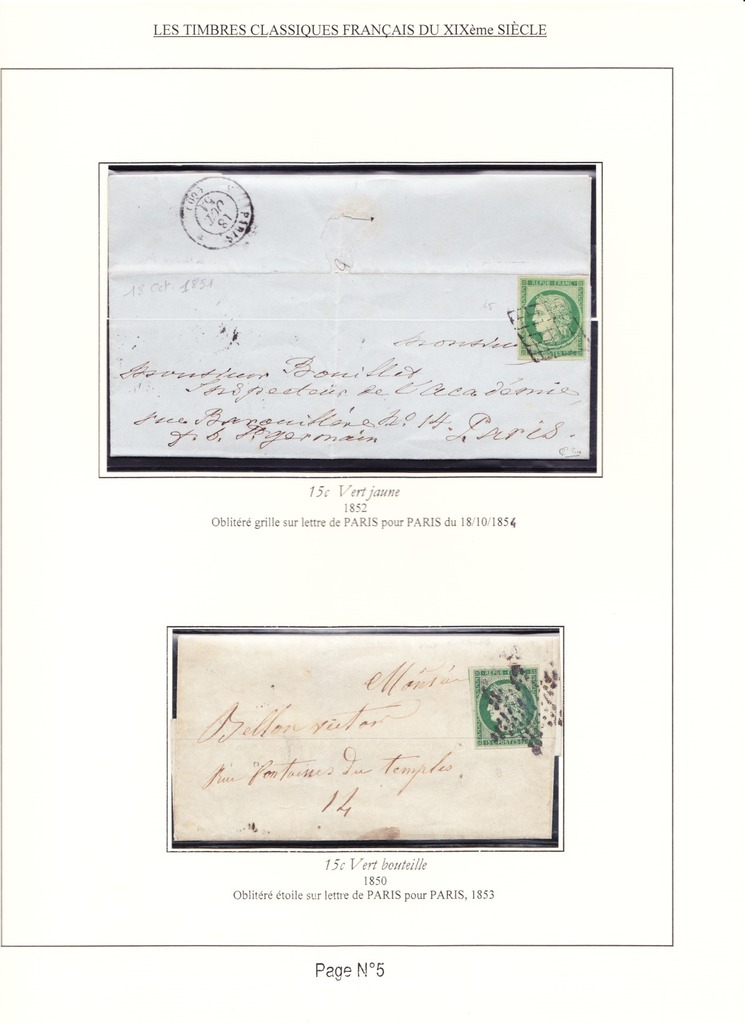 LES TIMBRES CLASSIQUES FRANÇAIS DU XIXème SIÈCLE
PARIS
18
OCT
51
(60)
18 Oct. 1851
15
REPUB. FRANC.
Monsieur
Monsieur Bouillet
Inspecteur de l'Académie
rue Barouillère no. 14. Paris.
f. b. St germain
15c Vert jaune
1852
Oblitéré grille sur lettre de PARIS pour PARIS du 18/10/1854
Monsieur
REPUB.
Bellon victor
15 c. POSTES
Rue fontaines du temple.
14
15c Vert bouteille
1850
Oblitéré étoile sur lettre de PARIS pour PARIS, 1853
Page N°5